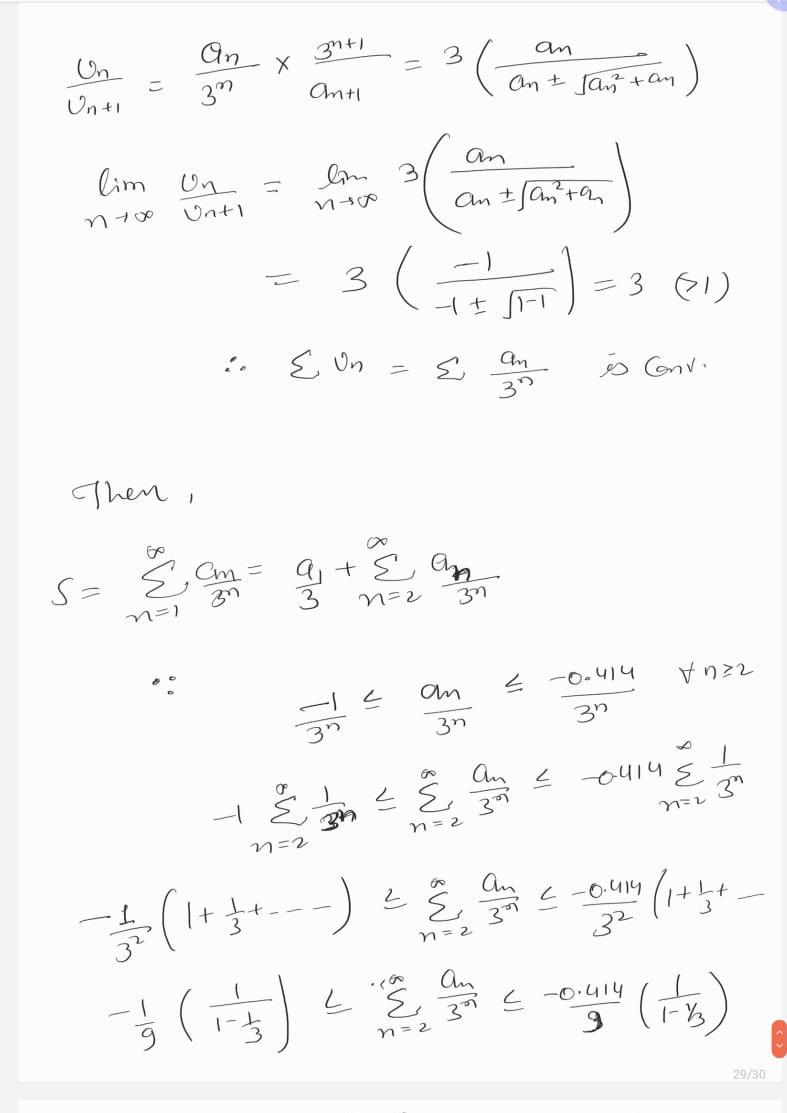 Un/Un+1 = an/3^n × 3^n+1/an+1 = 3 ( an / an ± √an² + an )
lim n→∞ Un/Un+1 = lim n→∞ 3 ( an / an ± √an² + an )
= 3 ( -1 / -1 ± √1-1 ) = 3 (>1)
∴ Σ Un = Σ an/3^n is Conv.
Then,
S = ∞ Σ n=1 an/3^n = a1/3 + ∞ Σ n=2 an/3^n
∵ -1/3^n ≤ an/3^n ≤ -0.414/3^n ∀ n≥2
-1 ∞ Σ n=2 1/3^n ≤ ∞ Σ n=2 an/3^n ≤ -0.414 ∞ Σ n=2 1/3^n
-1/3² ( 1 + 1/3 + - - - ) ≤ ∞ Σ n=2 an/3^n ≤ -0.414/3² ( 1 + 1/3 + -
-1/9 ( 1 / 1-1/3 ) ≤ ∞ Σ n=2 an/3^n ≤ -0.414/9 ( 1 / 1-1/3 )
29/30